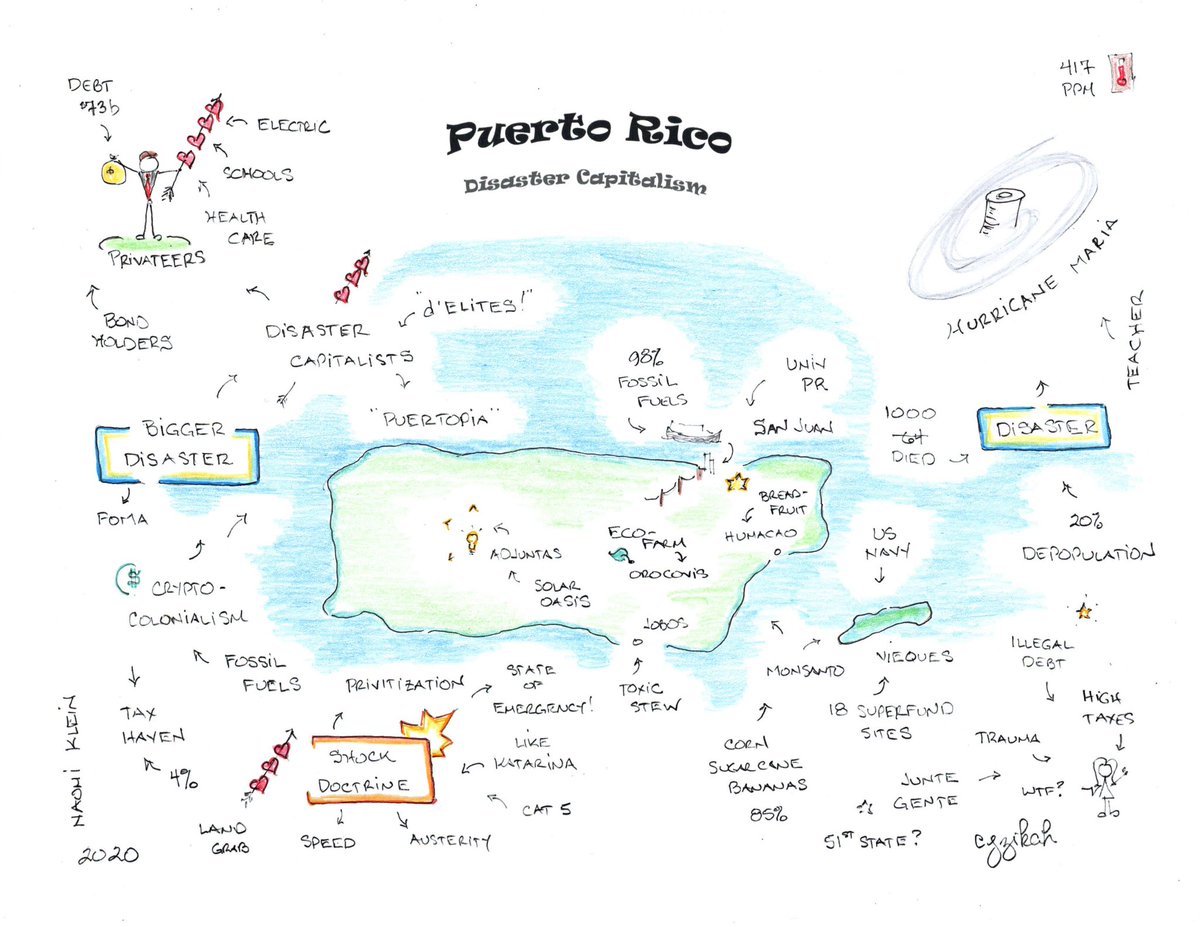 Puerto Rico
Disaster Capitalism
417
PPM
DEBT
$73b
ELECTRIC
SCHOOLS
HEALTH
CARE
PRIVATEERS
BOND
HOLDERS
DISASTER
CAPITALISTS
"d'ELITES!"
"PUERTOPIA"
98%
FOSSIL
FUELS
UNIV
PR
SAN JUAN
HURRICANE MARIA
TEACHER
1000
64
DIED
DISASTER
BIGGER
DISASTER
FOMA
BREAD-
FRUIT
HUMACAO
ECO-
FARM
OROCOVIS
ADJUNTAS
SOLAR
OASIS
US
NAVY
20%
DEPOPULATION
$
CRYPTO-
COLONIALISM
FOSSIL
FUELS
TAX
HAVEN
4%
LOBOS
TOXIC
STEW
MONSANTO
VIEQUES
18 SUPERFUND
SITES
ILLEGAL
DEBT
HIGH
TAXES
TRAUMA
WTF?
JUNTE
GENTE
51st STATE?
CORN
SUGARCANE
BANANAS
85%
PRIVITIZATION
STATE
OF
EMERGENCY!
SHOCK
DOCTRINE
LIKE
KATARINA
CAT 5
LAND
GRAB
SPEED
AUSTERITY
NAOMI KLEIN
2020
cyzikah